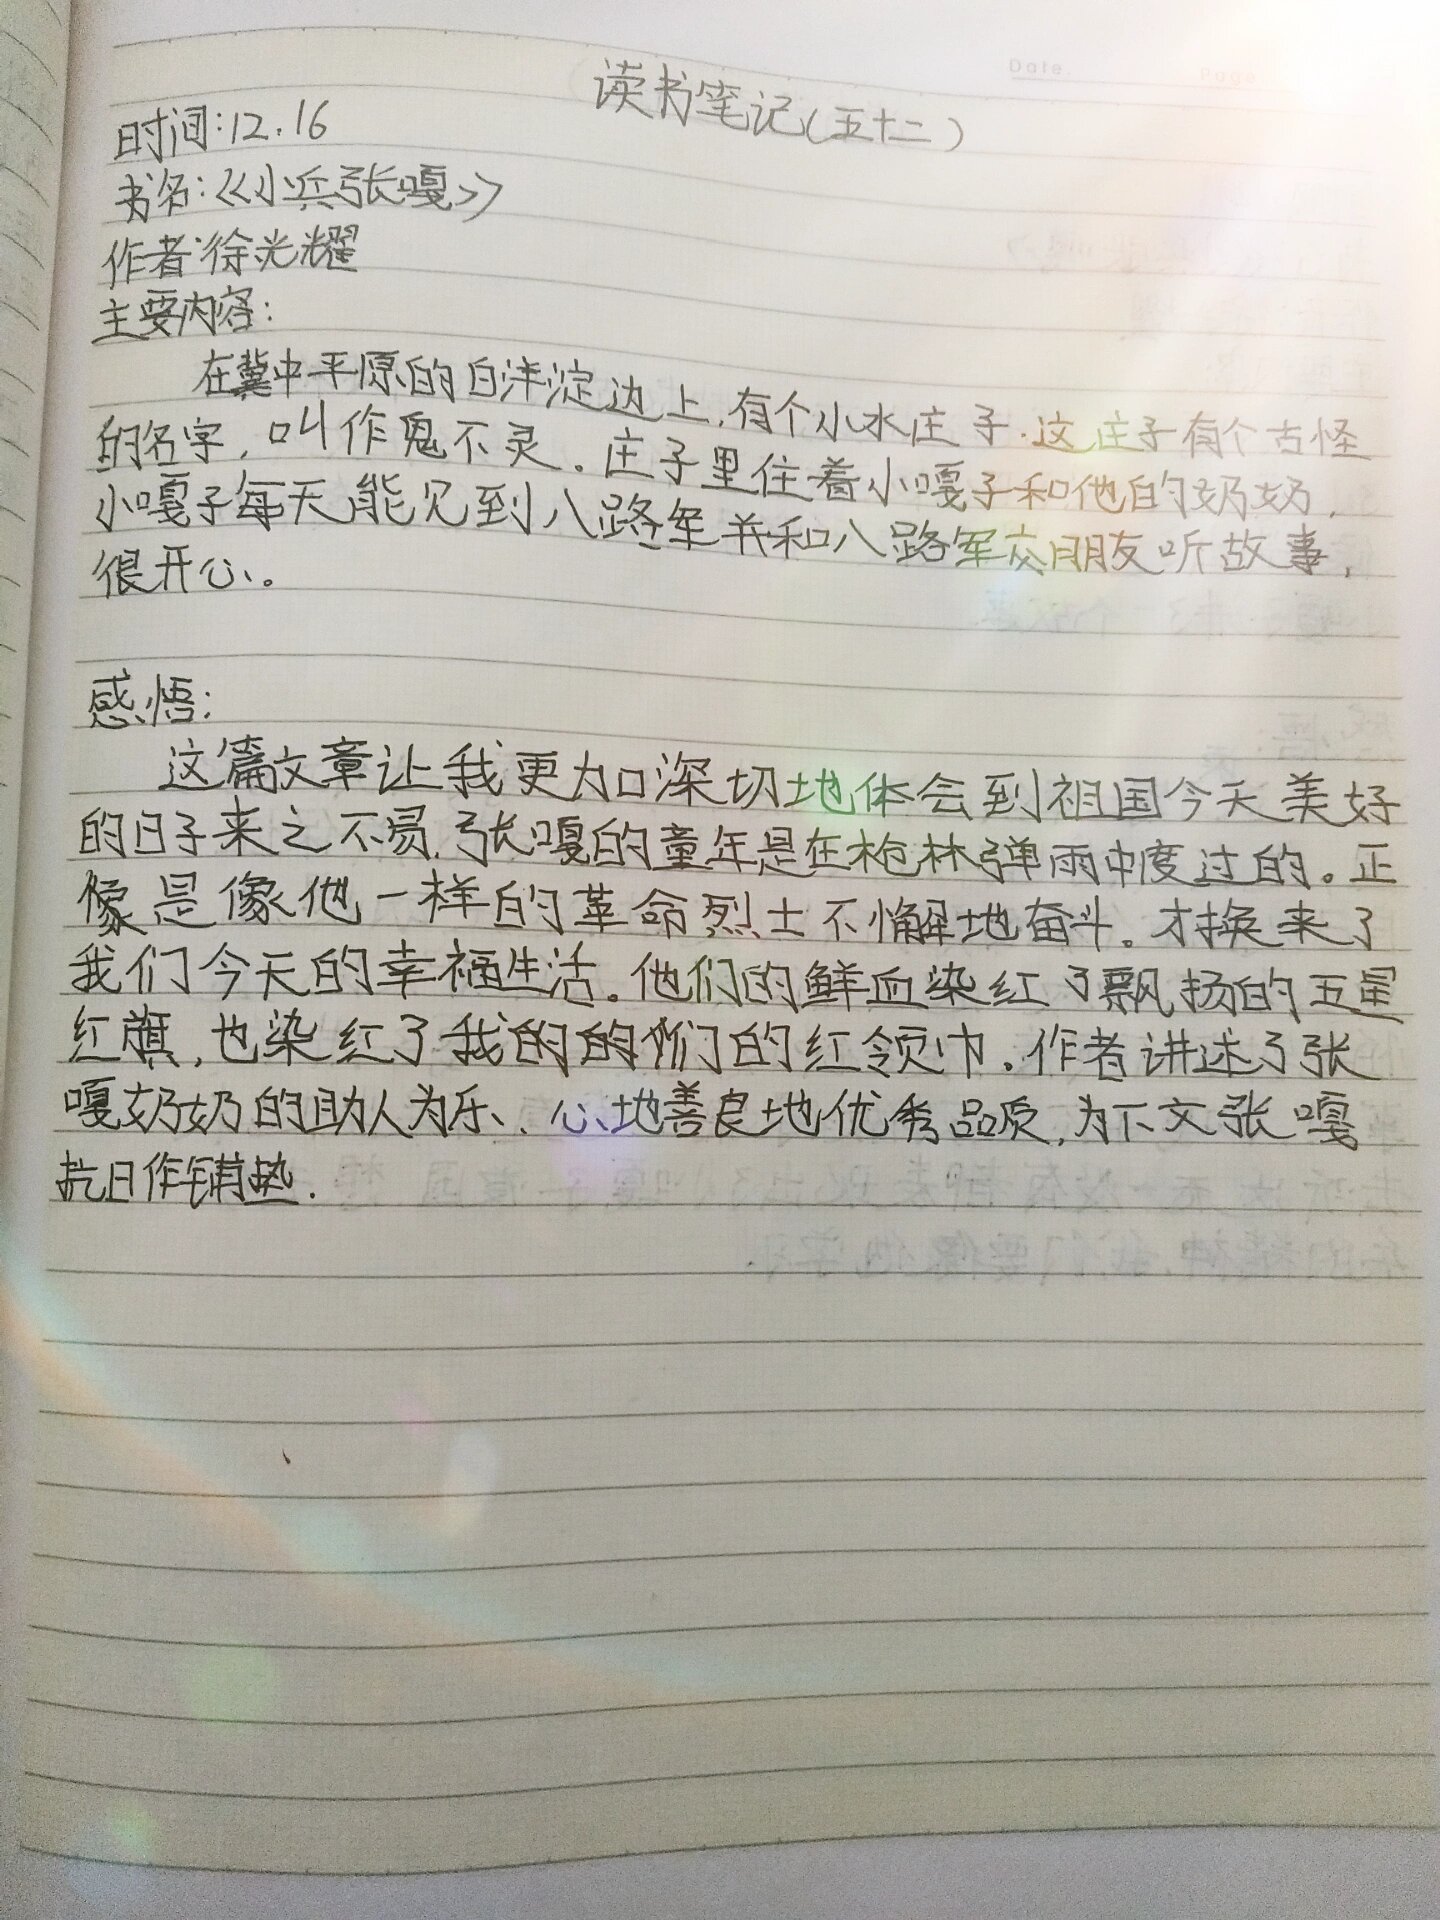 Date. Page.
读书笔记(五十二)
时间:12.16
书名:《小兵张嘎》
作者:徐光耀
主要内容:
在冀中平原的白洋淀边上,有个小水庄子.这庄子有个古怪
的名字,叫作鬼不灵。庄子里住着小嘎子和他的奶奶,
小嘎子每天能见到八路军并和八路军交朋友听故事,
很开心。
感悟:
这篇文章让我更加深切地体会到祖国今天美好
的日子来之不易.张嘎的童年是在枪林弹雨中度过的。正
像是像他一样的革命烈士不懈地奋斗。才换来了
我们今天的幸福生活。他们的鲜血染红了飘扬的五星
红旗,也染红了我的的们的红领巾.作者讲述了张
嘎奶奶的助人为乐、心地善良地优秀品质,为下文张嘎
抗日作铺垫.